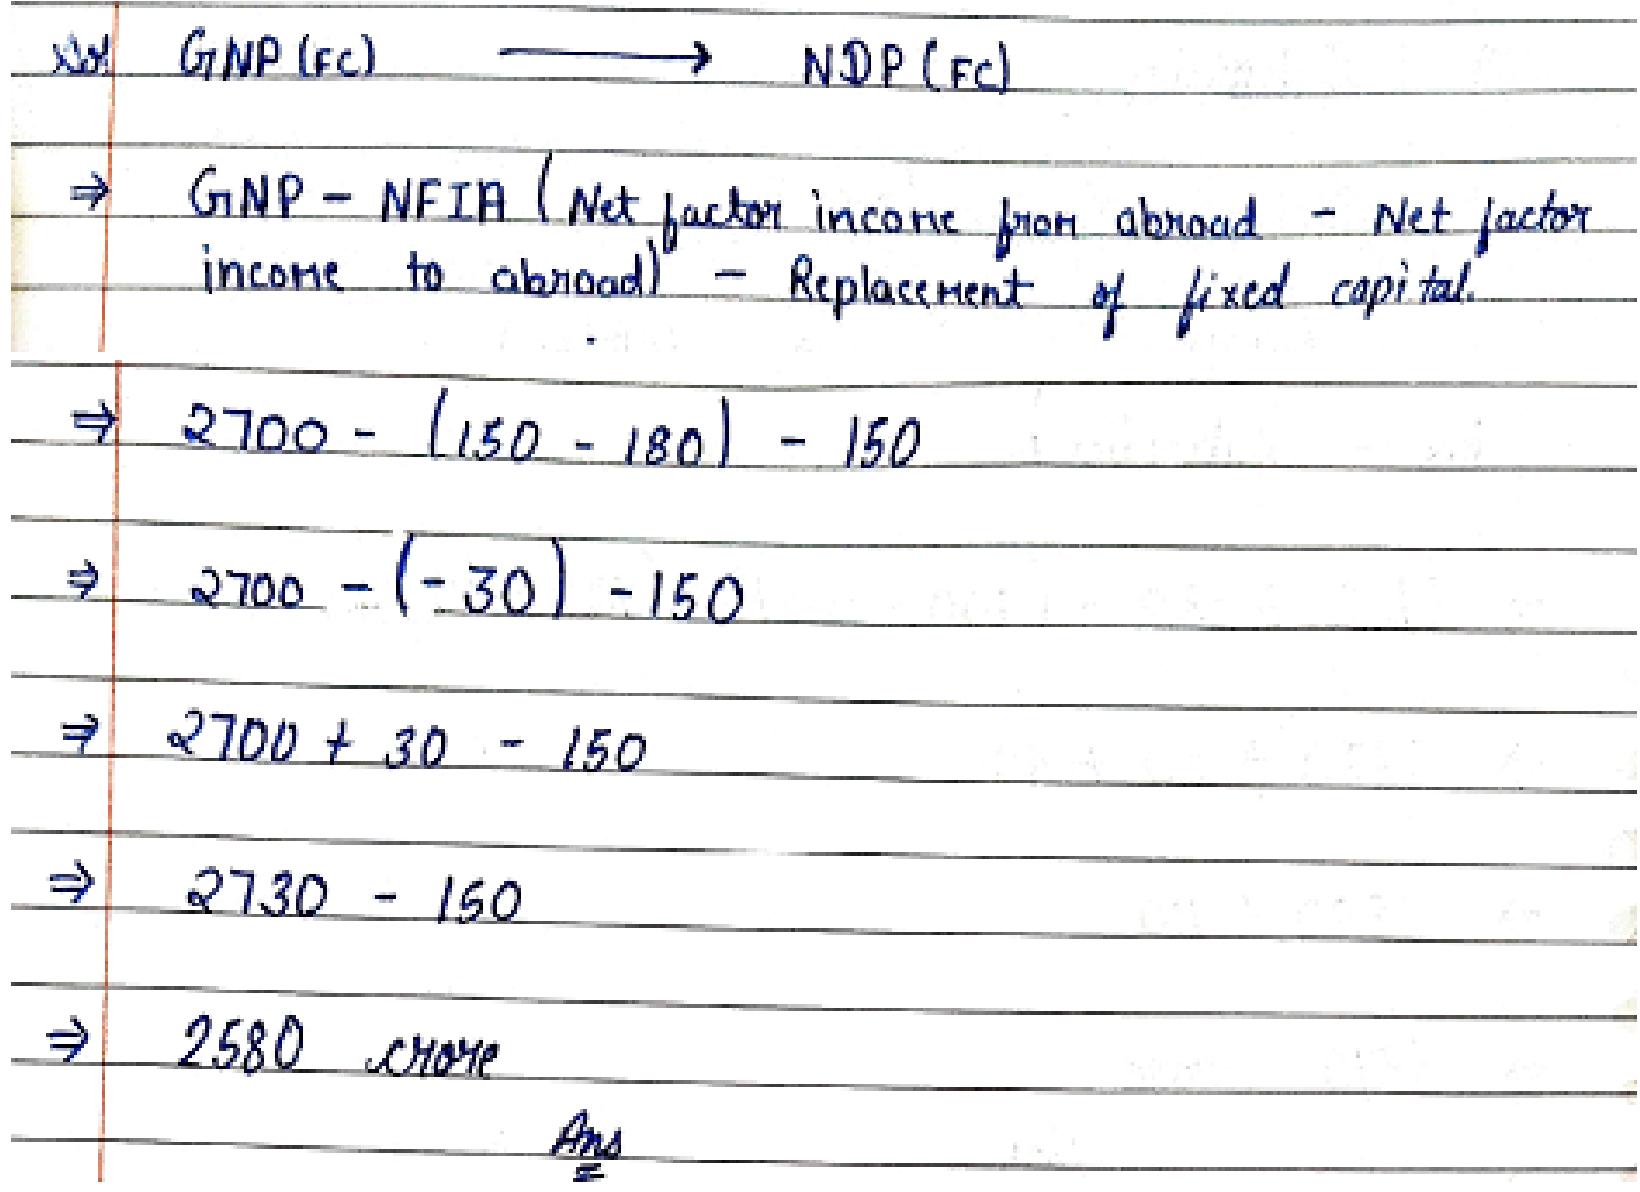 GNP (FC) ⟶ NDP (FC)
⇒ GNP - NFIA (Net factor income from abroad - Net factor
income to abroad) - Replacement of fixed capital.
⇒ 2700 - (150 - 180) - 150
⇒ 2700 - (-30) - 150
⇒ 2700 + 30 - 150
⇒ 2730 - 150
⇒ 2580 crore
Ans